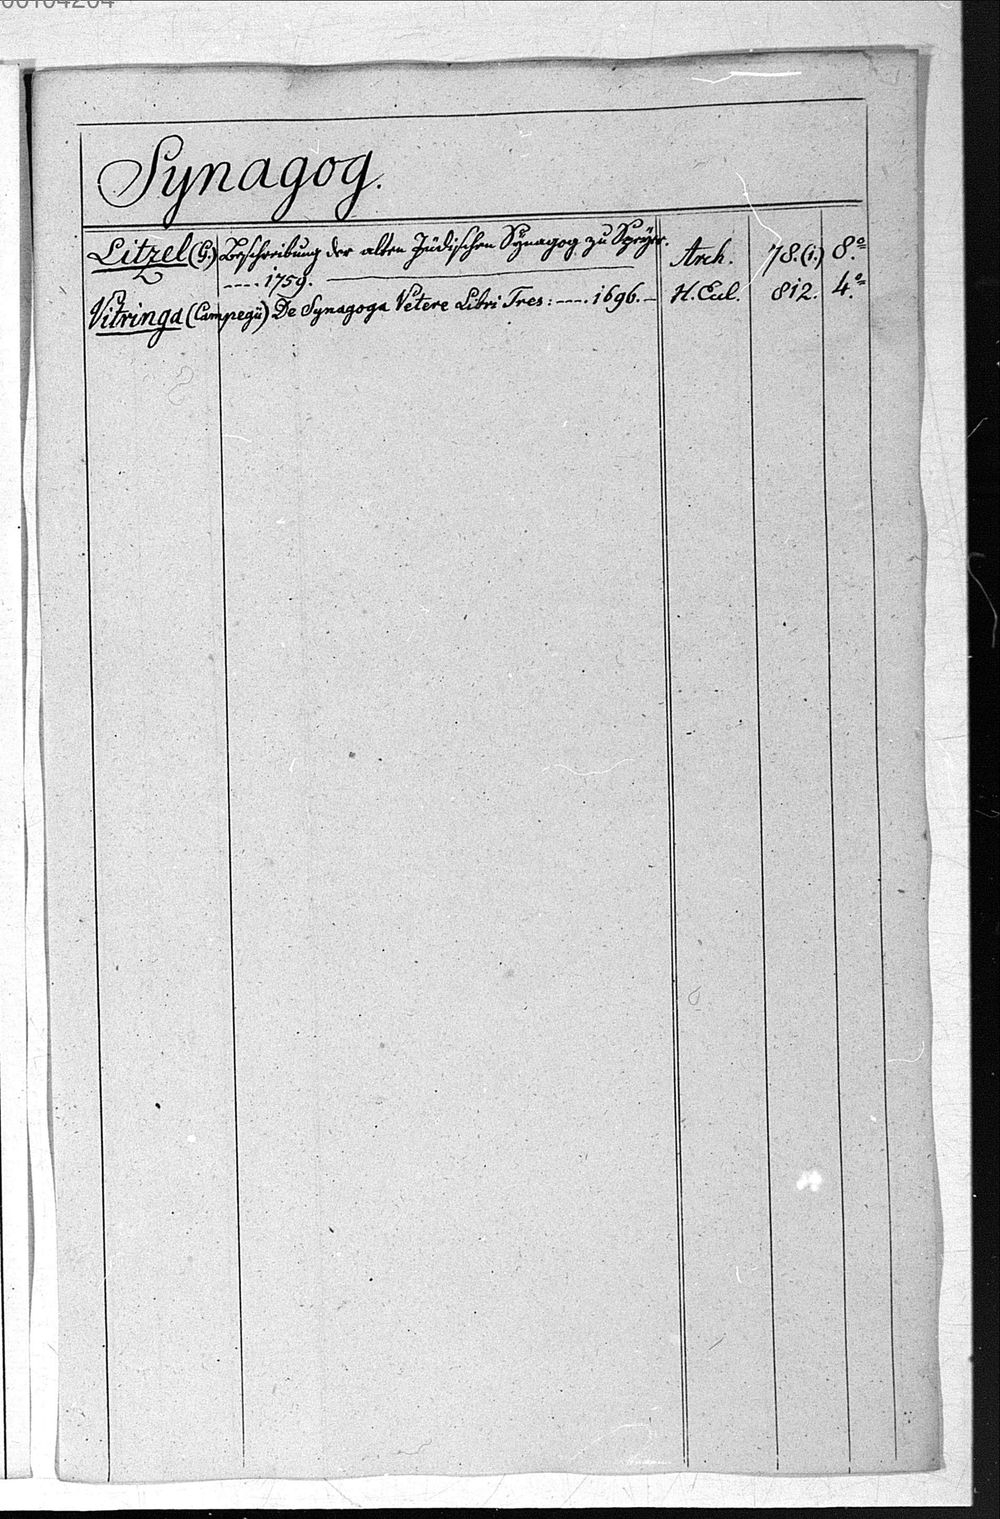 Synagog.
Litzel (G.) Beschreibung der alten Jüdischen Synagog zu Speÿer. Arch. 78.(i.) 8.º
---- 1759.
Vitringa (Campegii) De Synagoga Vetere Libri Tres: ---- 1696. — H. Eccl. 812. 4.º